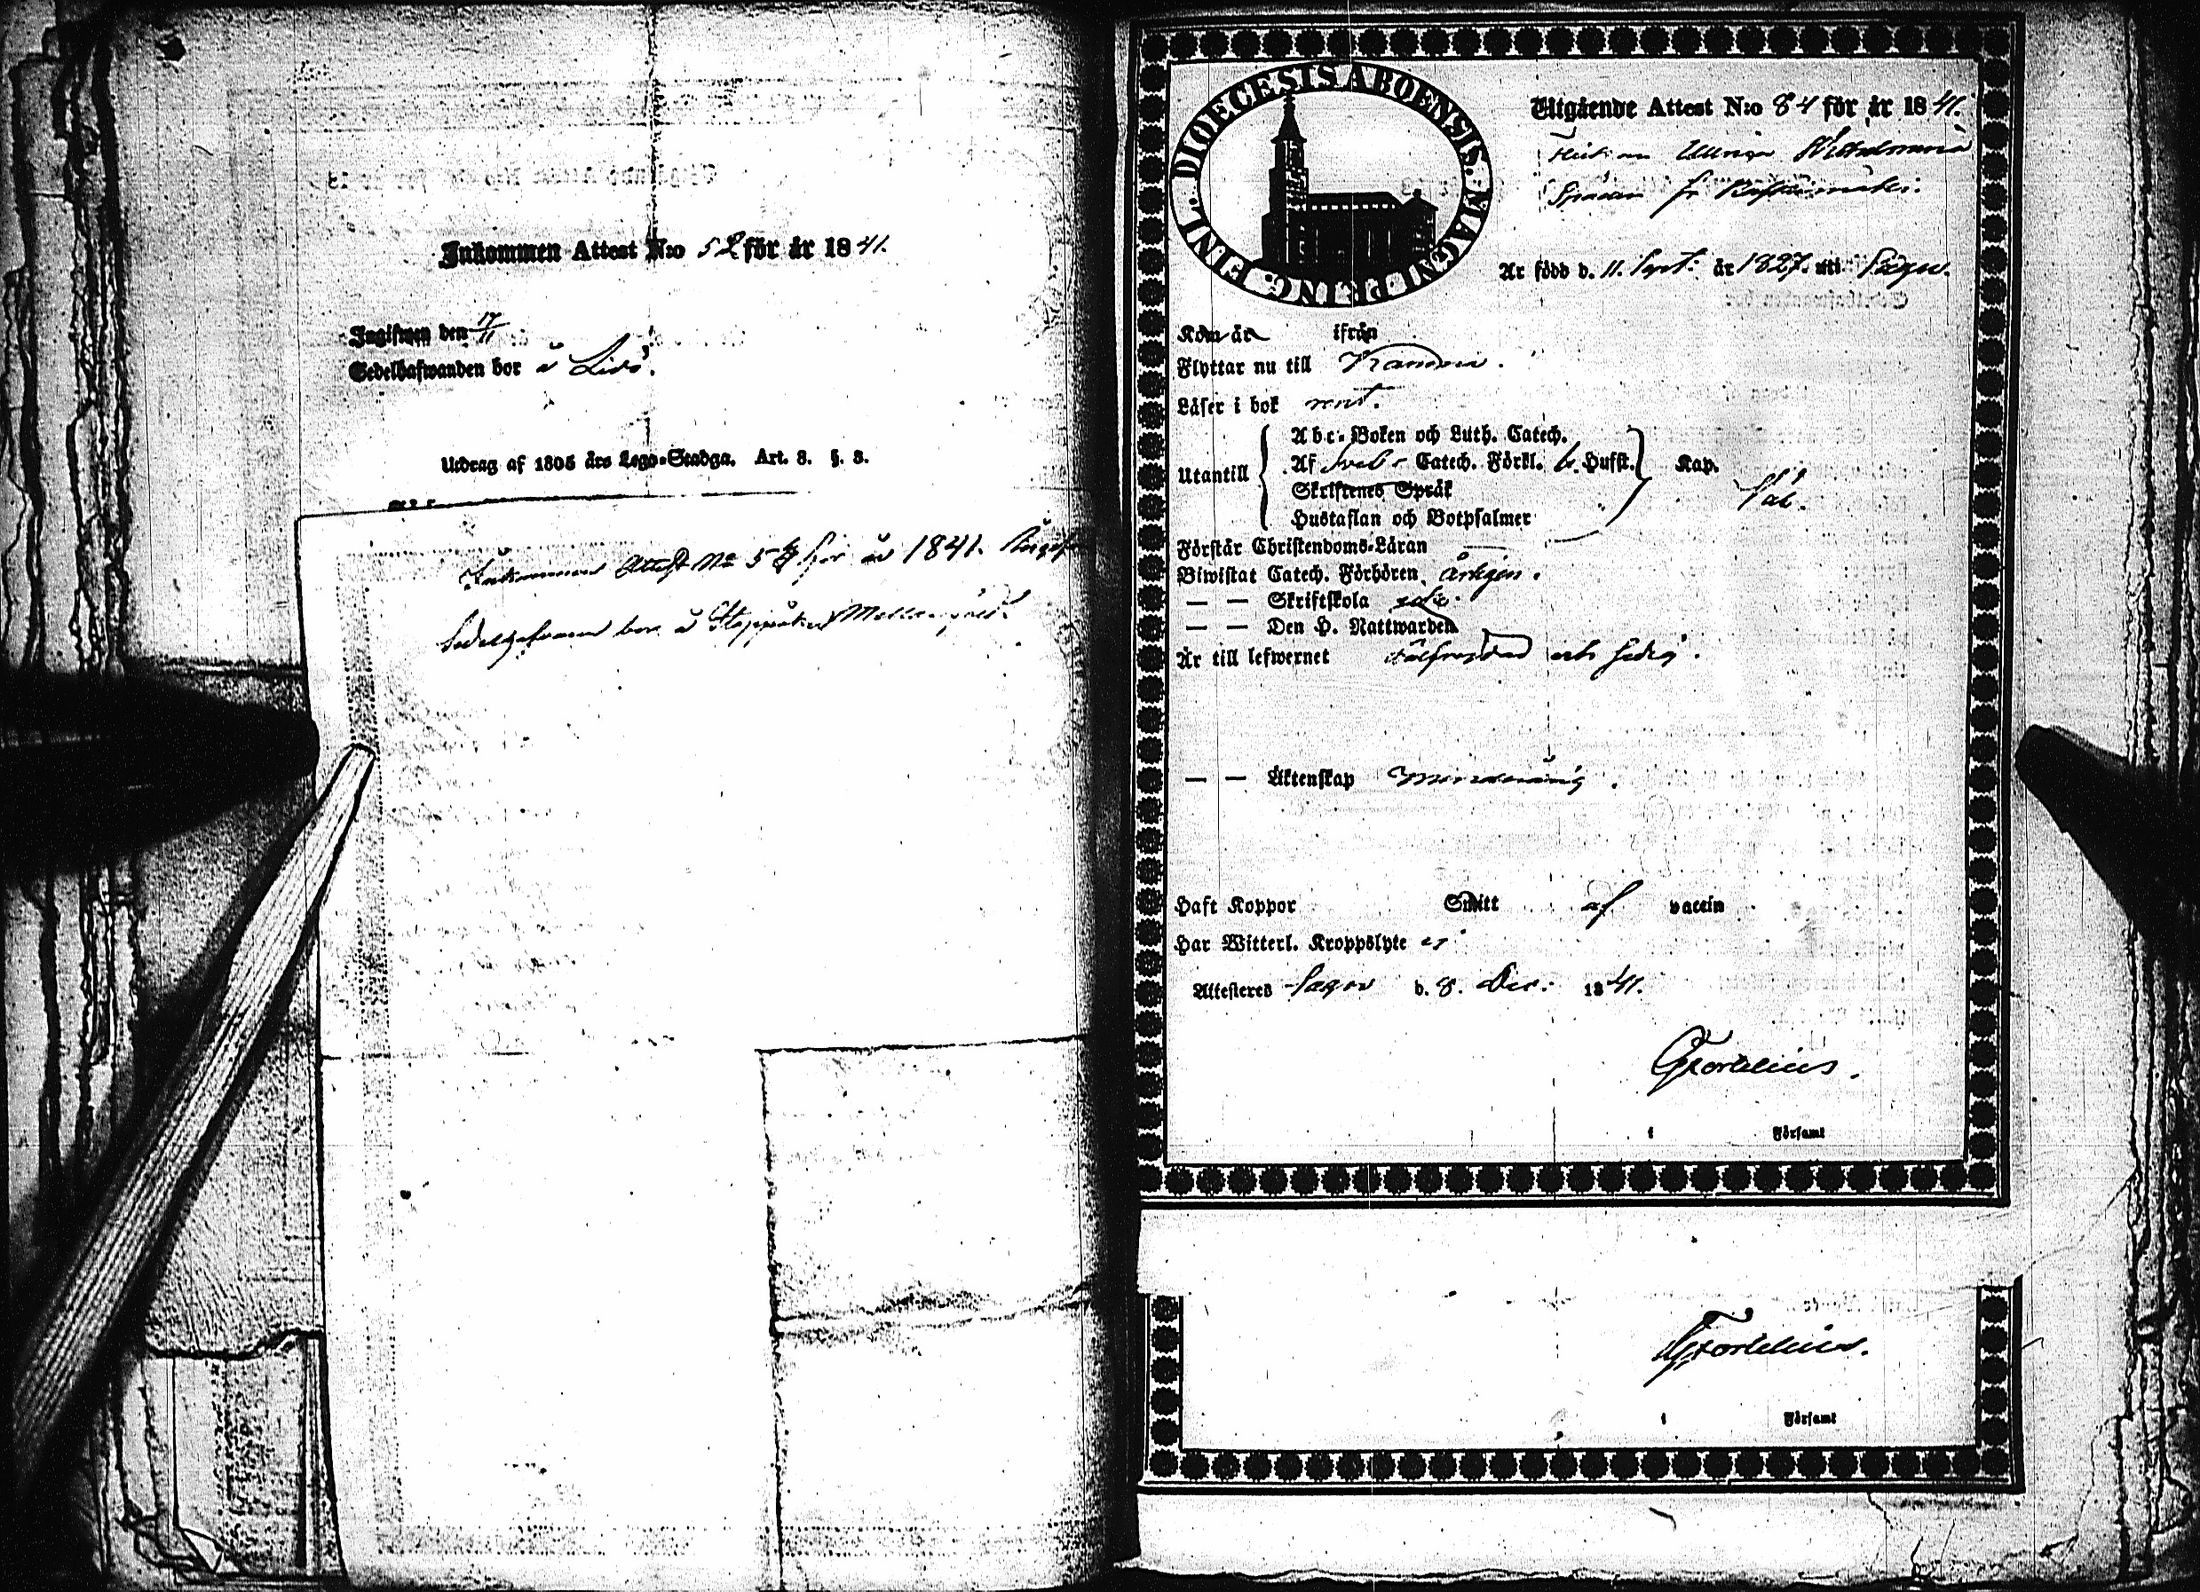 Inkommen Attest N:o 52 för år 1841.
Ingifwen den 17/11
Sedelhafwanden bor å Lidö.
Utdrag af 1805 års Lego-Stadga. Art. 8. §. 8.
Inkommen Attest No 5 för år 1841.
Sedelhafvanden bor å
DIOECESIS ABOENSIS. MAGNI PRINC. FINL.
Utgående Attest N:o 84 för år 1841.
Flickan Ulrica Wilhelmina
fr
Är född d. 11. Sept: år 1827. uti Sagu.
Kom år ifrån
Flyttar nu till
Läser i bok rent.
Utantill
Abc-Boken och Luth. Catech.
Af Sveb. Catech. Förkl. Hufst. Kap.
Skriftenes Språk
Hustaflan och Botpsalmer
Förstår Christendoms-Läran
Biwistat Catech. Förhören årligen.
— — Skriftskola
— — Den H. Nattwarden
Är till lefwernet välfrejdad och sedig.
— — Äktenskap minderårig.
Haft Koppor Smitt af vaccin
Har Witterl. Kroppslyte ej
Attesteras Sagu d. 8. Dec: 1841.
i Församl
i Församl